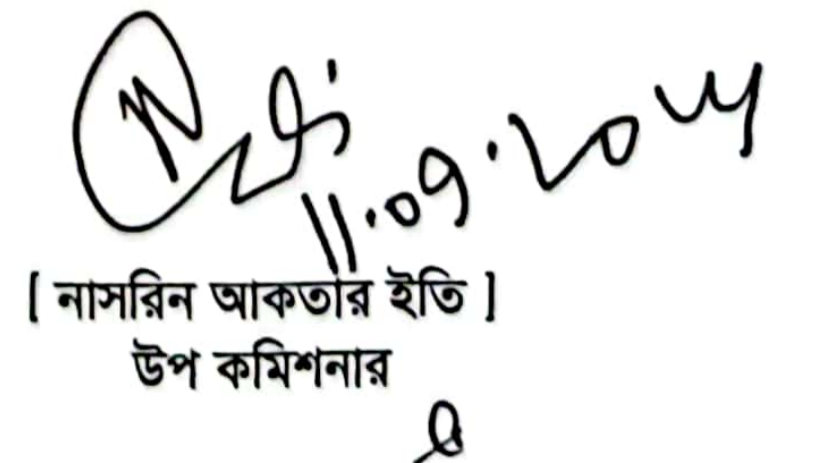 11.09.2024
[ নাসরিন আকতার ইতি ]
উপ কমিশনার